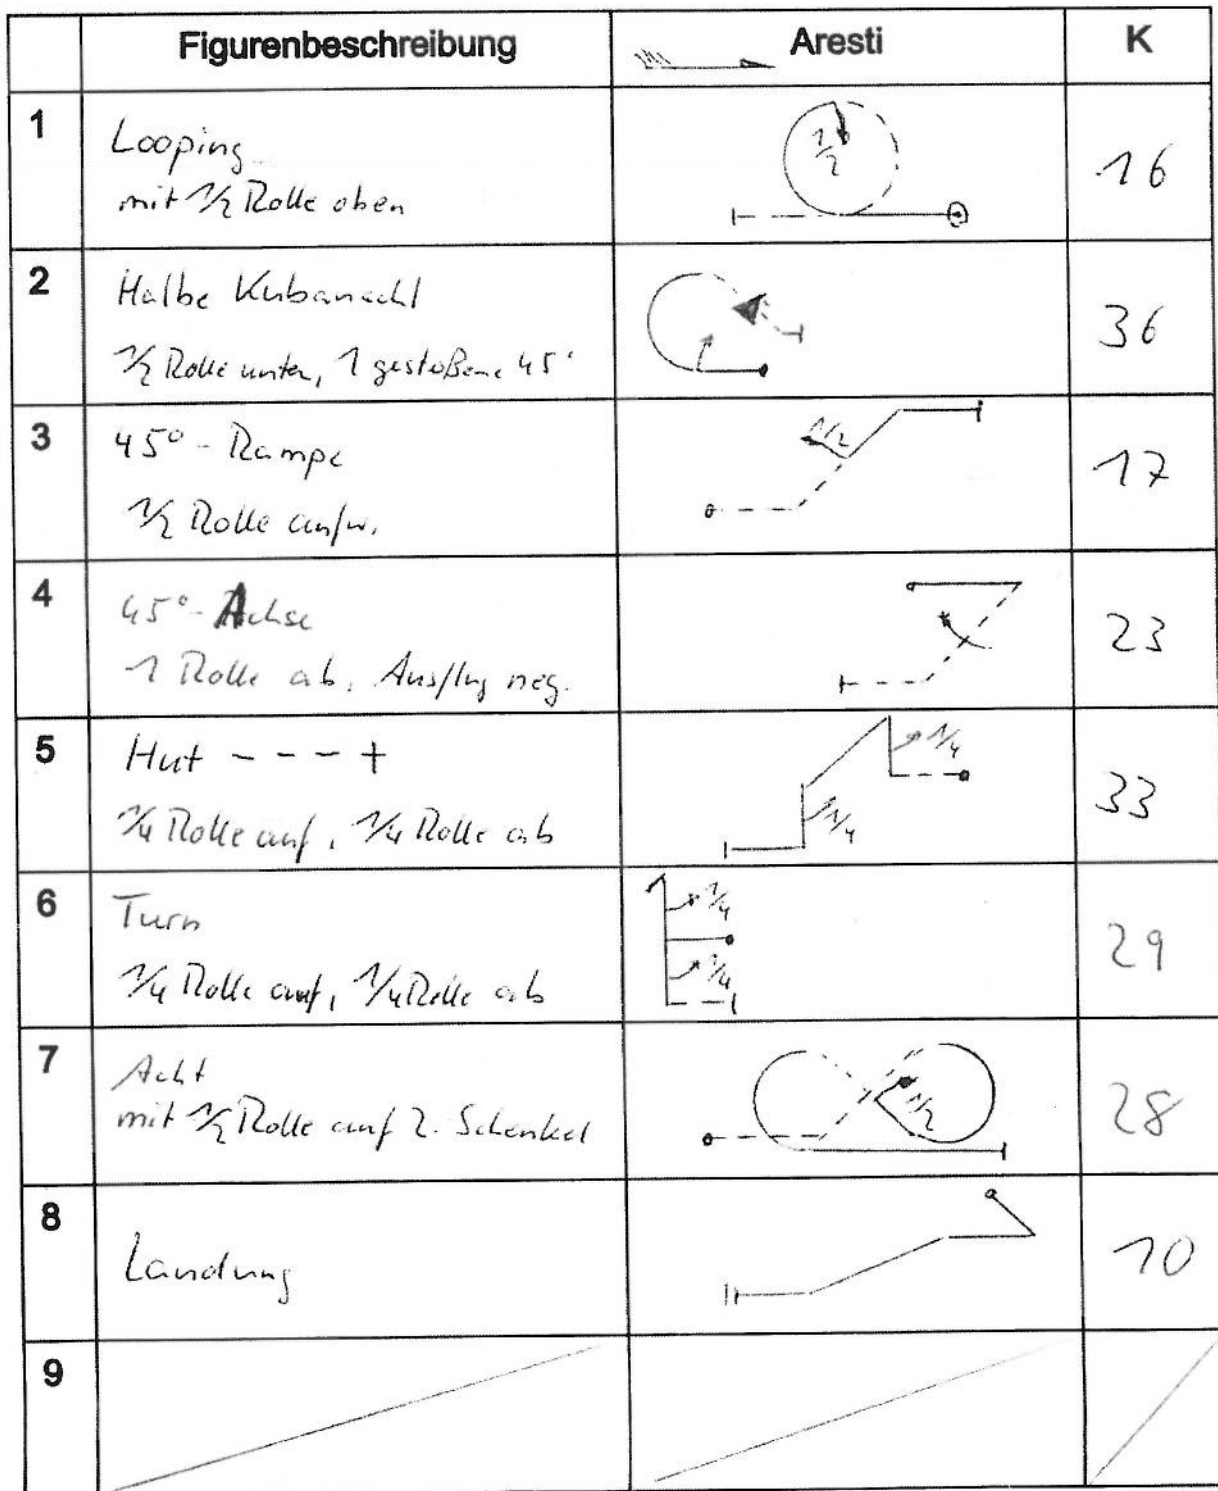 Figurenbeschreibung Aresti K
1 Looping
mit 1/2 Rolle oben
1/2
16
2 Halbe Kubanacht
1/2 Rolle unten, 1 gestoßene 45°
36
3 45° - Rampe
1/2 Rolle aufw.
1/2
17
4 45° - Achse
1 Rolle ab, Ausflug neg.
23
5 Hut - - - +
1/4 Rolle auf, 1/4 Rolle ab
1/4
1/4
33
6 Turn
1/4 Rolle auf, 1/4 Rolle ab
1/4
1/4
29
7 Acht
mit 1/2 Rolle auf 2. Schenkel
1/2
28
8 Landung
10
9